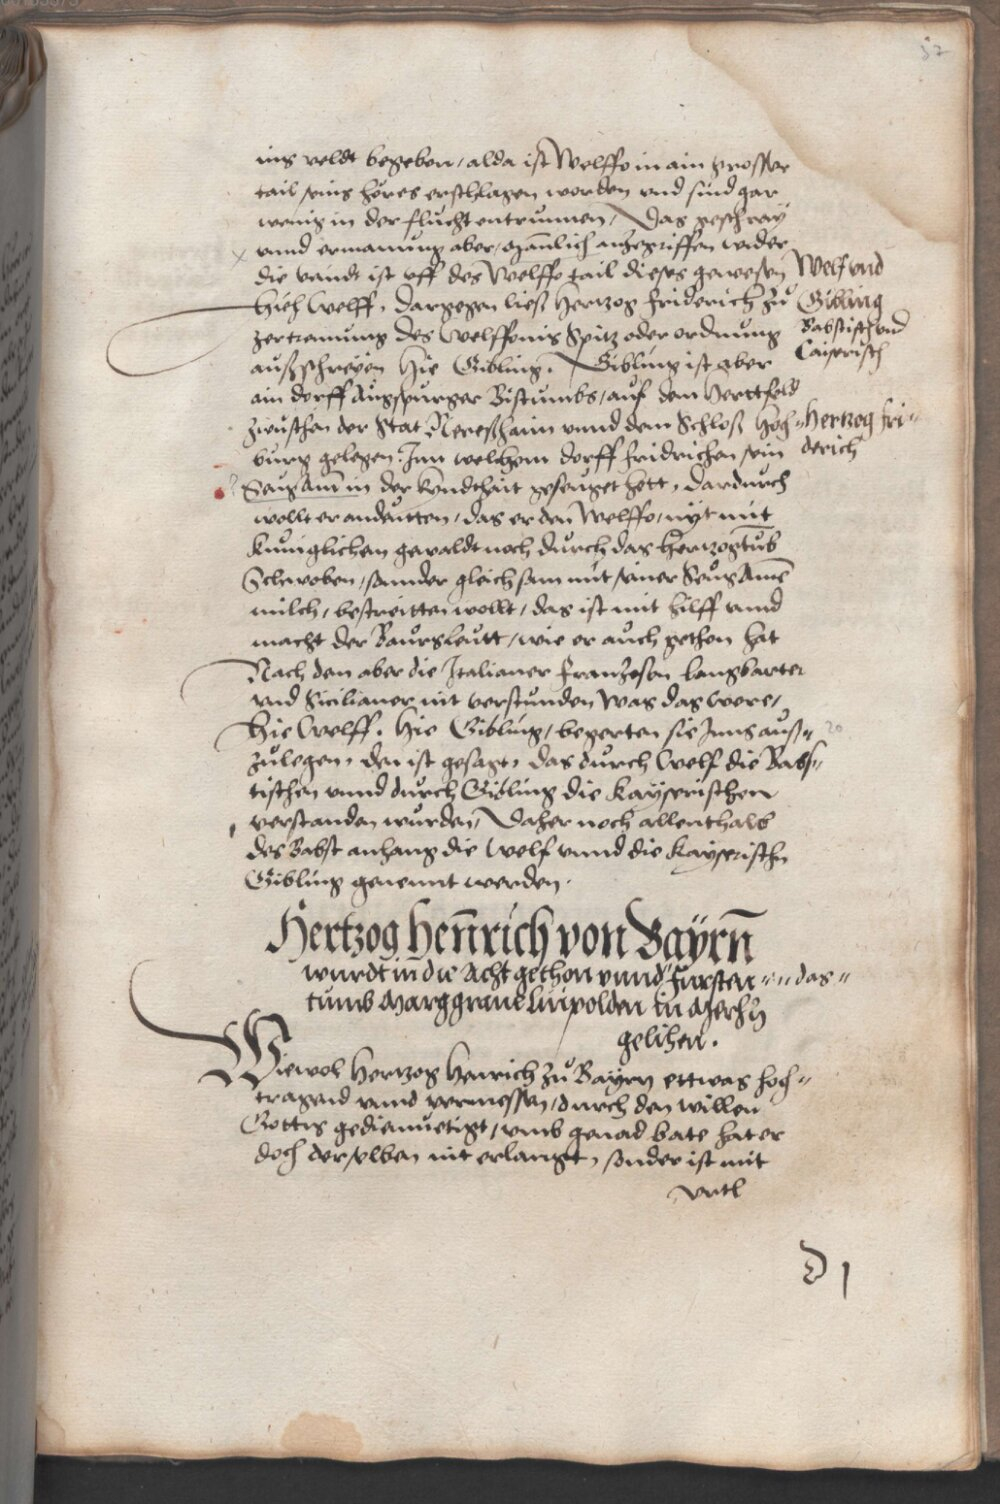 37
ins veldt begeben / alda ist Welffo in ain grosser
tail seins hores erschlagen worden vnd sind gar
wenig in der flucht entrunnen / Das geschray
vnnd ermanung aber / manlich anzegriffen wider
die veindt ist vff des Welffo tail dieses gewesen
Hieh Welff. Dargegen ließ Hertzog Friderich zů
zertrannung des Welffonis Spitz oder ordnung
außschreyen Hie Gibling. Gibling ist aber
ain dorff Augspurger Bistumbs / auf dem Herttfeld
zwuschen der Stat Nereßhaim vnnd dem Schloß Hoch-
burg gelegen. Inn welchem dorff Fridrichen sein
Seugam in der kyndthait geseuget hett, Dardurch
wollt er andeutten / das er den Welffo / nyt mit
Kuniglichem gewaldt noch durch das Hertzogtub
Schwoben / sunder gleich sam mit seiner Seugamē
milch / bestreitten wollt / das ist mit hilff vnnd
macht der Baursleutt / wie er auch gethon hat
Nach dem aber die Italianer Franzosen Langbarter
vnd Sicilianer nit verstunden was das were /
Hie Welff. Hie Gibling / begerten sie Inns auß-
zulegen, den ist gesagt, das durch Welf die Babs-
tischen vnnd durch Gibling die Kayserischen
verstanden wurden / Daher noch allenthalb
des Babst anhang die Welf vnnd die Kayserischn
Gibling genennt werden.
Welf vnd
Gibling
Babstisch vnd
Caiserisch
Hertzog Fri-
derich
Hertzog Henrich von Bayrn
wurdt in die Acht gethon vnnd das Fursten-
tumb Marggraue Luipolden in Merhn
gelihen.
Wiewol Hertzog Henrich zů Bayrn ettwas hoch-
tragend vnnd vermessen / durch den willen
Gottis gediemuetigt / vmb genad bate hat er
doch derselben nit erlangt, sonder ist mit
Vrtl
D 1